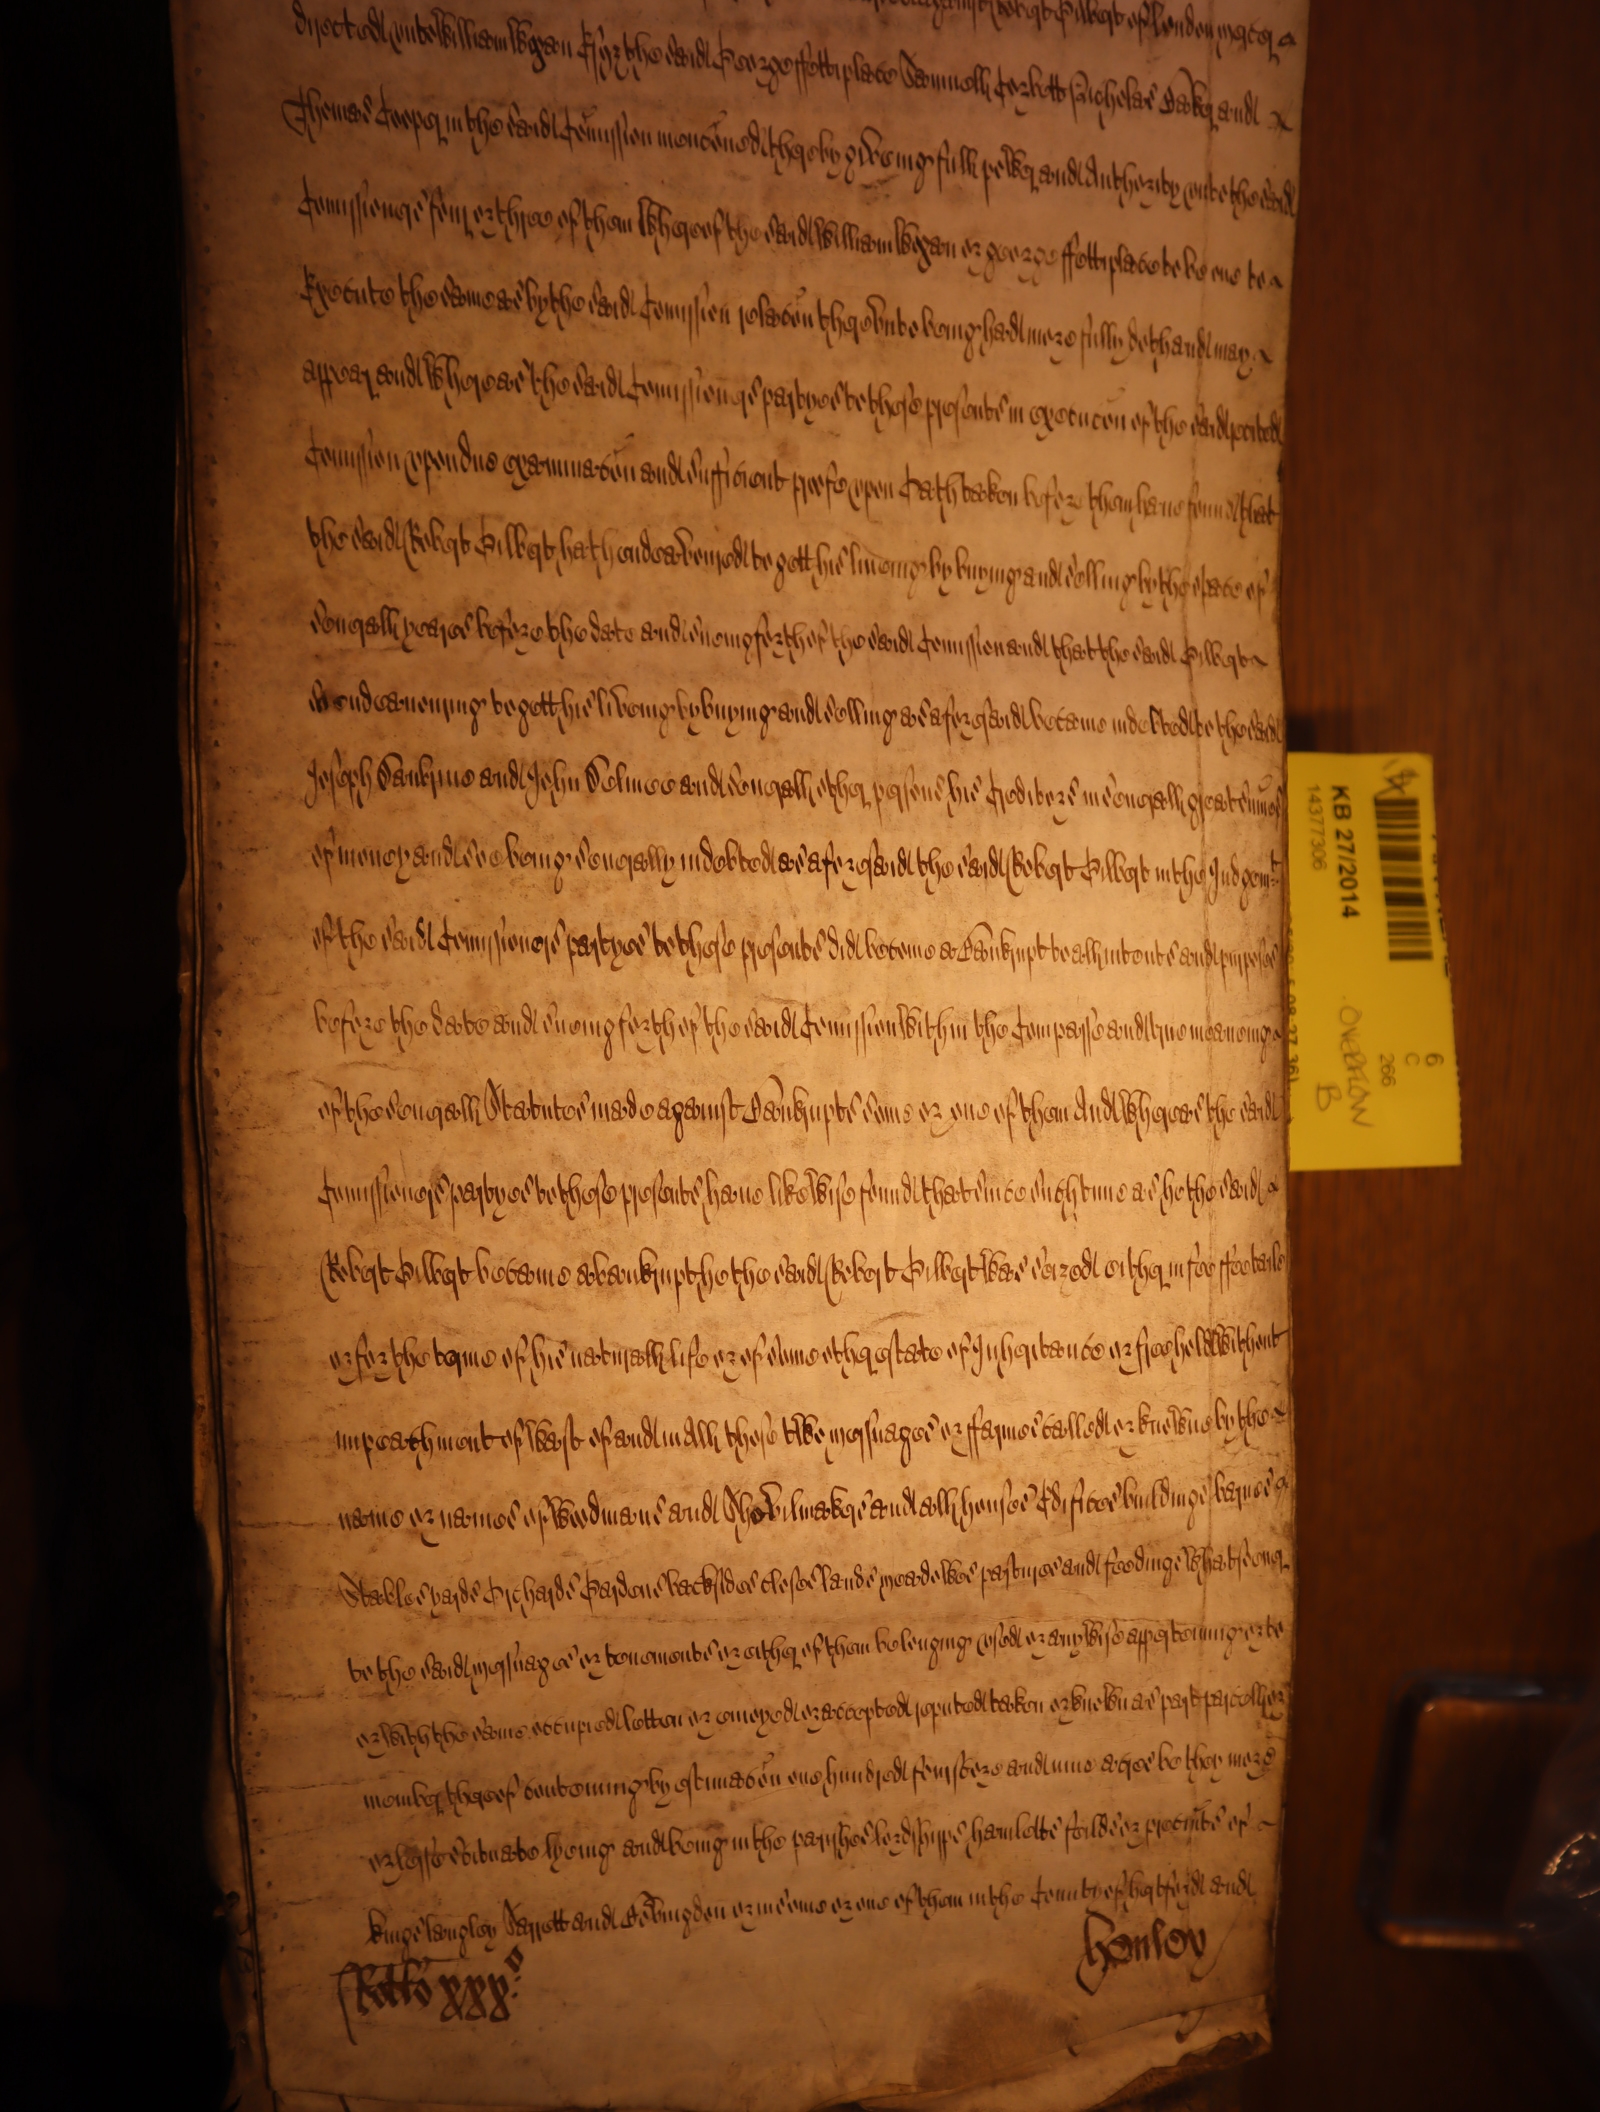 Robert Gilbert of London mercer
directed unto William Wogan Esqr the said George ffettiplace Samuell Corbett Nicholas Baker and
Thomas Cooper in the said Comission menconed thereby giveing full power and Authority unto the said
Comissioners four or three of them Whereof the said William Wogan or george ffettiplace to be one to
Execute the same as by the said Comission relacon thereunto being had more fully doth and may
appear and Whereas the said Comissioners partyes to these presents in execucon of the said recited
Comission upon due examinacon and sufficient proofe upon Oath taken before them have found that
the said Robert Gilbert hath endeavoured to gett his liveing by buying and selling by the space of
severall yeares before the date and sueing forth of the said Comission and that the said Gilbert
so endeavouring to gett his liveing by buying and selling as aforesaid became indebted to the said
Joseph and John and severall other persons his Creditors in severall great sumes
of money and soe being severally indebted as aforesaid the said Robert Gilbert in the Judgemt
of the said Comissioners partyes to these presents did become a Bankrupt to all intents and purposes
before the date and sueing forth of the said Comission Within the Compasse and true meaneing
of the severall Statutes made against Bankrupts some or one of them And Whereas the said
Comissioners partyes to these presents have likewise found that since such time as he the said
Robert Gilbert became a bankrupt he the said Robert Gilbert Was seized either in fee ffee taile
or for the terme of his naturall life or of some other estate of Inheritance or freehold Without
impeachment of Wast of and in All those two messuages or ffarmes called or knowne by the
name or names of Woodmans and Shovilmakers and all houses Edifices buildings barnes
Stables yards Orchards Gardens backsides closes lands meadowes pastures and feedings Whatsoever
to the said messuages or tenements or either of them belonging used or anywise apperteining or to
or With the same occupied letten or enioyed or accepted reputed taken or knowne as part parcell or
member thereof conteining by estimacon one hundred fourscore and nine acres be they more
or lesse scituate lyeing and being in the parishes lordshipps hamletts feilds or precincts of
Kings langley Sarrett and or in some or one of them in the County of hertford and
Rotlo xxx:o
Henley
KB 27/2014
14377306
OVERFLOW
B
6
C
266